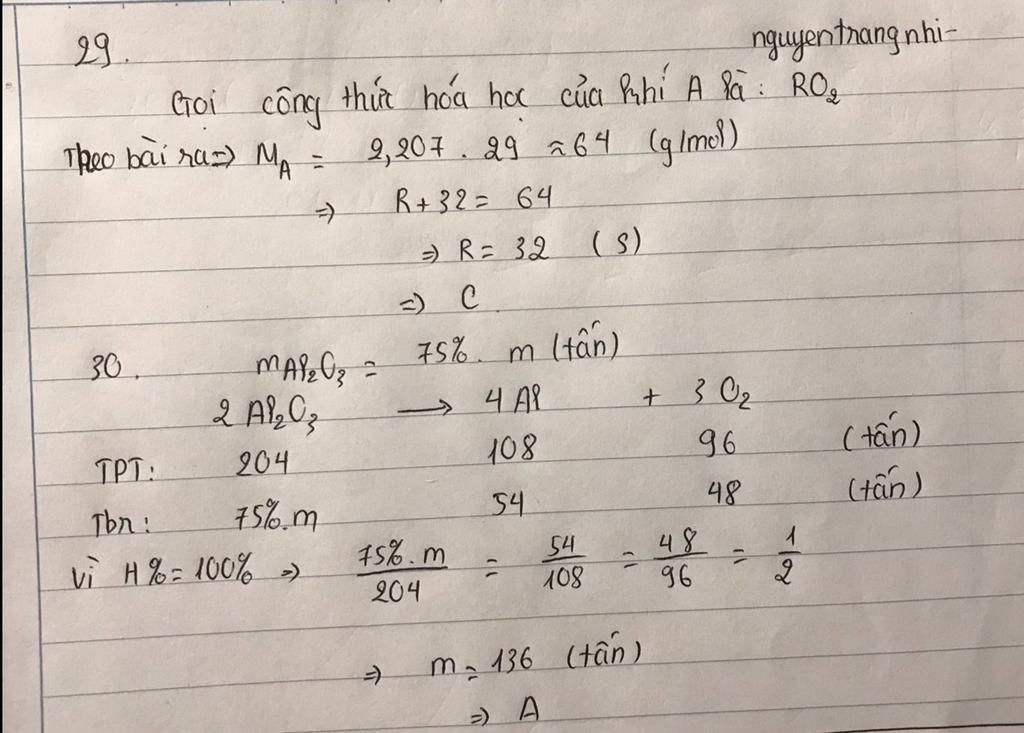 29.
nguyentrangnhi-
Gọi công thức hóa học của khí A là: RO₂
Theo bài ra=> M_A = 2,207 . 29 ≈ 64 (g/mol)
=> R + 32 = 64
=> R = 32 (S)
=> C
30. mAl₂O₃ = 75%. m (tấn)
2 Al₂O₃ → 4 Al + 3 O₂
TPT: 204 108 96 (tấn)
Tbr: 75%.m 54 48 (tấn)
Vì H%= 100% => 75%. m / 204 = 54 / 108 = 48 / 96 = 1 / 2
=> m = 136 (tấn)
=> A